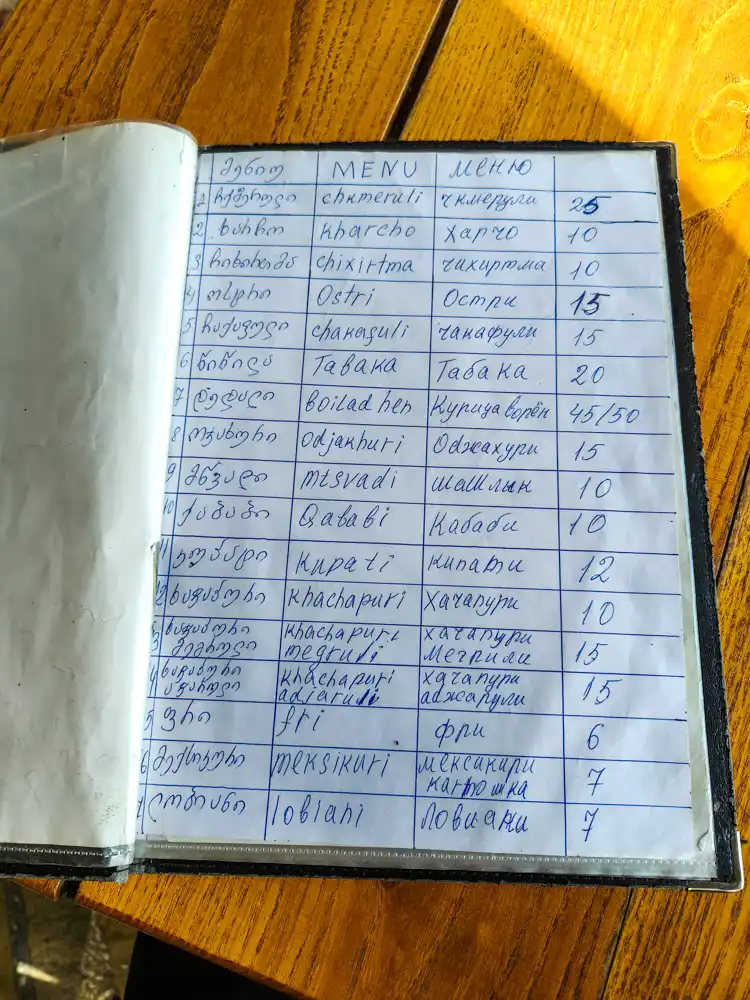 მენიუ MENU МЕНЮ
1 ჩქმერული chkmeruli чкмерули 25
2 ხარჩო kharcho харчо 10
3 ჩიხირთმა chixirtma чихиртма 10
4 ოსტრი Ostri Остри 15
5 ჩაქაფული chakafuli чакафули 15
6 წიწილა Tabaka Табака 20
7 დედალი boilad hen Курица ворён 45/50
8 ოჯახური odjakhuri Оджахури 15
9 მწვადი mtsvadi шашлык 10
10 ქაბაბი Qababi Кабаби 10
11 კუპატი kupati купати 12
12 ხაჭაპური khachapuri хачапури 10
3 ხაჭაპური khachapuri хачапури
მეგრული megruli мегрили 15
4 ხაჭაპური khachapuri хачапури
აჭარული adjaruli аджарули 15
5 ფრი fri фри 6
6 მექსიკური meksikuri мексикири
картошка 7
ლობიანი lobiani Ловиани 7